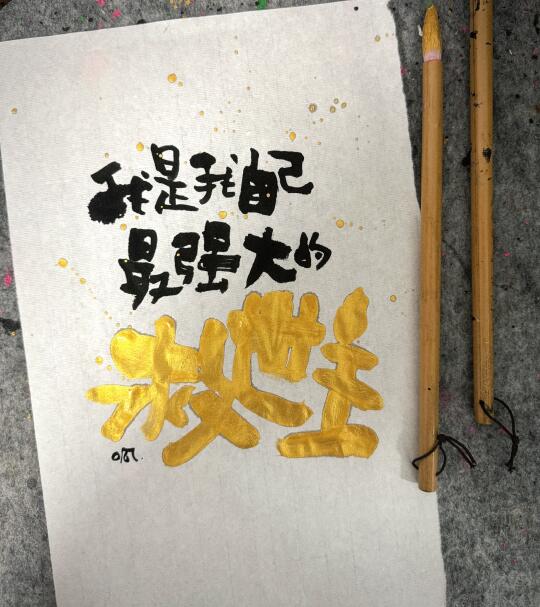 我是我自己
最强大的
救世主